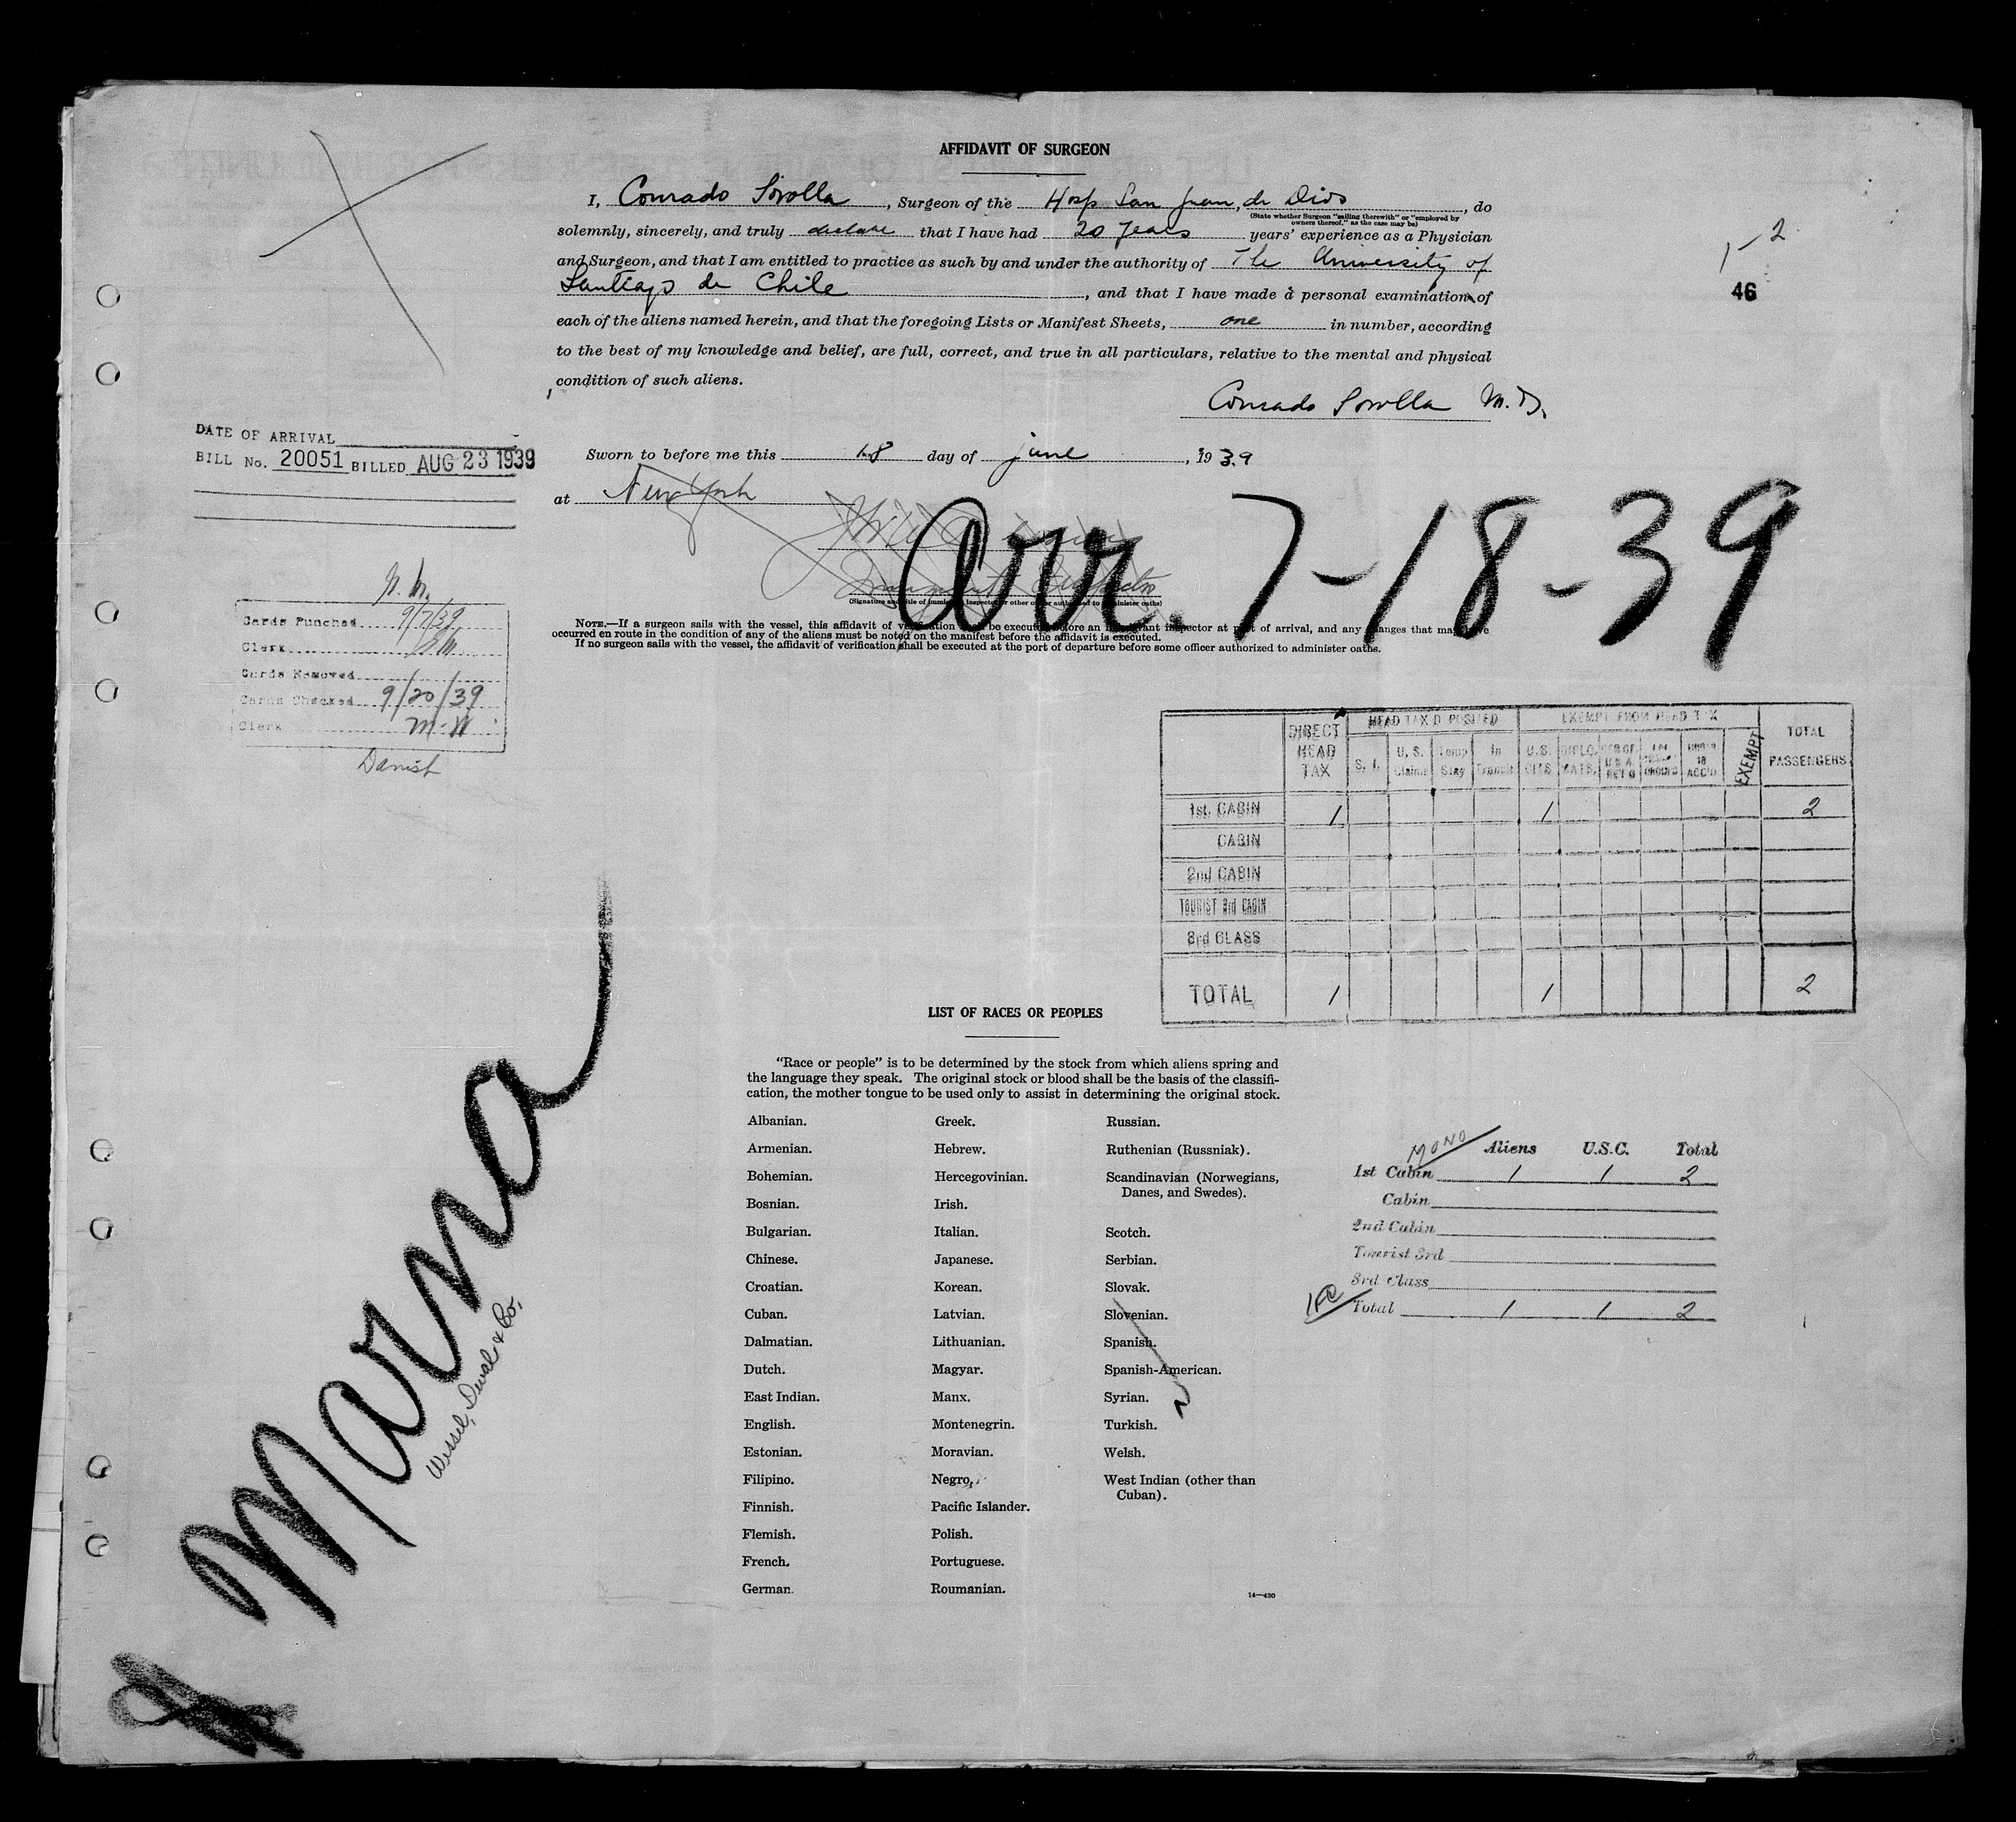 AFFIDAVIT OF SURGEON
I, Conrado Sorolla, Surgeon of the Hosp San Juan de Dios, do
(State whether Surgeon "sailing therewith" or "employed by
owners thereof," as the case may be)
solemnly, sincerely, and truly declare that I have had 20 years years' experience as a Physician
and Surgeon, and that I am entitled to practice as such by and under the authority of The University of
Santiago de Chile, and that I have made a personal examination of
each of the aliens named herein, and that the foregoing Lists or Manifest Sheets, one in number, according
to the best of my knowledge and belief, are full, correct, and true in all particulars, relative to the mental and physical
condition of such aliens.
Conrado Sorolla M.D.
1-2
46
DATE OF ARRIVAL
BILL No. 20051 BILLED AUG 23 1939
Sworn to before me this 18 day of june, 1939
at New York
Arr. 7-18-39
Immigrant Inspector
(Signature and title of Immigrant Inspector or other officer authorized to administer oaths)
NOTE.—If a surgeon sails with the vessel, this affidavit of verification shall be executed before an immigrant inspector at port of arrival, and any changes that may have
occurred en route in the condition of any of the aliens must be noted on the manifest before the affidavit is executed.
If no surgeon sails with the vessel, the affidavit of verification shall be executed at the port of departure before some officer authorized to administer oaths.
Cards Punched 9/7/39
Clerk
Cards Removed
Cards Checked 9/20/39
Clerk M-W
Danish
DIRECT HEAD TAX
HEAD TAX DEPOSITED
EXEMPT FROM HEAD TAX
TOTAL PASSENGERS
S. I. U. S. Claims Temp Stay In Transit U.S. CITS. DIPLOMATS. UNDER 16 ACC'D EXEMPT
1st. CABIN 1 1 2
CABIN
2nd CABIN
TOURIST 3rd CABIN
3rd CLASS
TOTAL 1 1 2
Marna
Wessel, Duval & Co.
LIST OF RACES OR PEOPLES
"Race or people" is to be determined by the stock from which aliens spring and
the language they speak. The original stock or blood shall be the basis of the classifi-
cation, the mother tongue to be used only to assist in determining the original stock.
Albanian.
Armenian.
Bohemian.
Bosnian.
Bulgarian.
Chinese.
Croatian.
Cuban.
Dalmatian.
Dutch.
East Indian.
English.
Estonian.
Filipino.
Finnish.
Flemish.
French.
German.
Greek.
Hebrew.
Hercegovinian.
Irish.
Italian.
Japanese.
Korean.
Latvian.
Lithuanian.
Magyar.
Manx.
Montenegrin.
Moravian.
Negro.
Pacific Islander.
Polish.
Portuguese.
Roumanian.
Russian.
Ruthenian (Russniak).
Scandinavian (Norwegians,
Danes, and Swedes).
Scotch.
Serbian.
Slovak.
Slovenian.
Spanish.
Spanish-American.
Syrian.
Turkish.
Welsh.
West Indian (other than
Cuban).
14—430
MONO Aliens U.S.C. Total
1st Cabin 1 1 2
Cabin
2nd Cabin
Tourist 3rd
3rd Class
Total 1 1 2